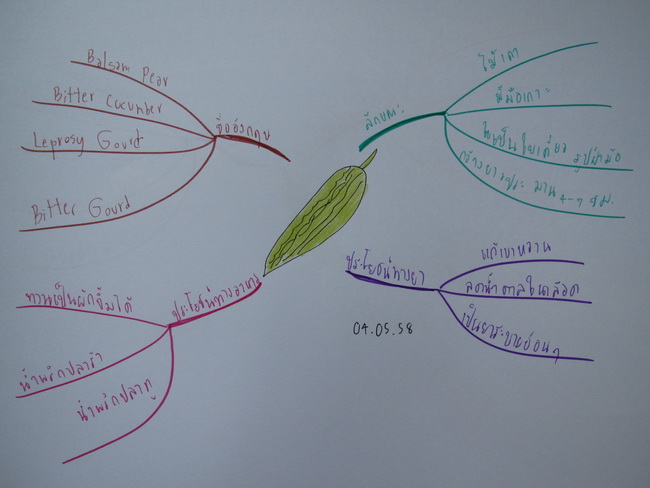 ชื่ออังกฤษ
Balsam Pear
Bitter Cucumber
Leprosy Gourd
Bitter Gourd
ลักษณะ
ไม้เถา
มีมือเกาะ
ใบเป็นใบเดี่ยว รูปฝ่ามือ
กว้างยาวประมาณ 4-7 ซม.
ประโยชน์ทางยา
แก้เบาหวาน
ลดน้ำตาลในเลือด
เป็นยาระบายอ่อนๆ
04.05.58
ประโยชน์ทางอาหาร
ทานเป็นผักจิ้มได้
น้ำพริกปลาร้า
น้ำพริกปลาทู